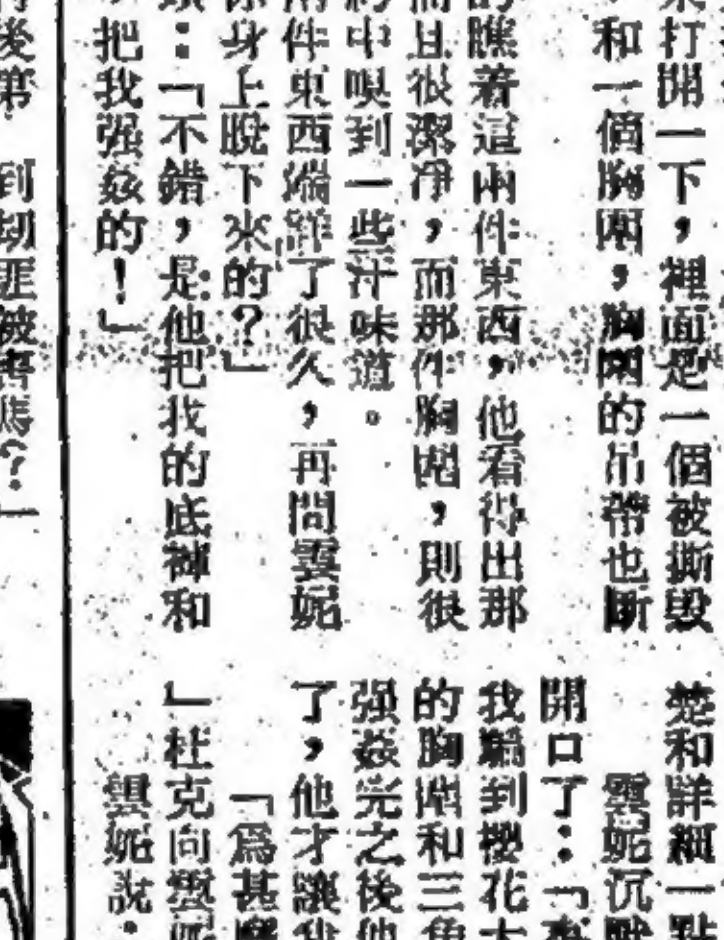 來打開一下，裡面是一個被撕毀
和一個胸圍，胸圍的吊帶也斷
的瞧着這兩件東西，他看得出那
而且很潔凈，而那件胸圍，則很
約中嗅到一些汁味道。
兩件東西端詳了很久，再問雲妮
你身上脫下來的？」
：「不錯，是他把我的底褲和
把我强姦的！」
楚和詳細一點
雲妮沉默
開口了：「
我騙到櫻花大
的胸圍和三角
强姦完之後他
了，他才讓我
「爲甚麼
」杜克向雲妮
雲妮說：
後第
到
被
？」